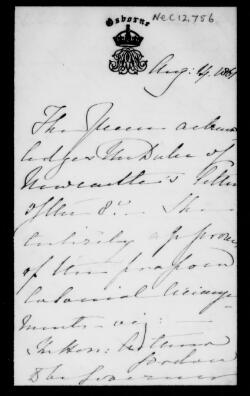 Osborne
NeC 12,756
Aug: 1861
The Queen acknow
ledges the Duke of
Newcastle's letter
of the 8th. She
entirely approves
of the proposed
Colonial arrange
ments – viz: –
The Hon: Arthur
Gordon
to be Governor